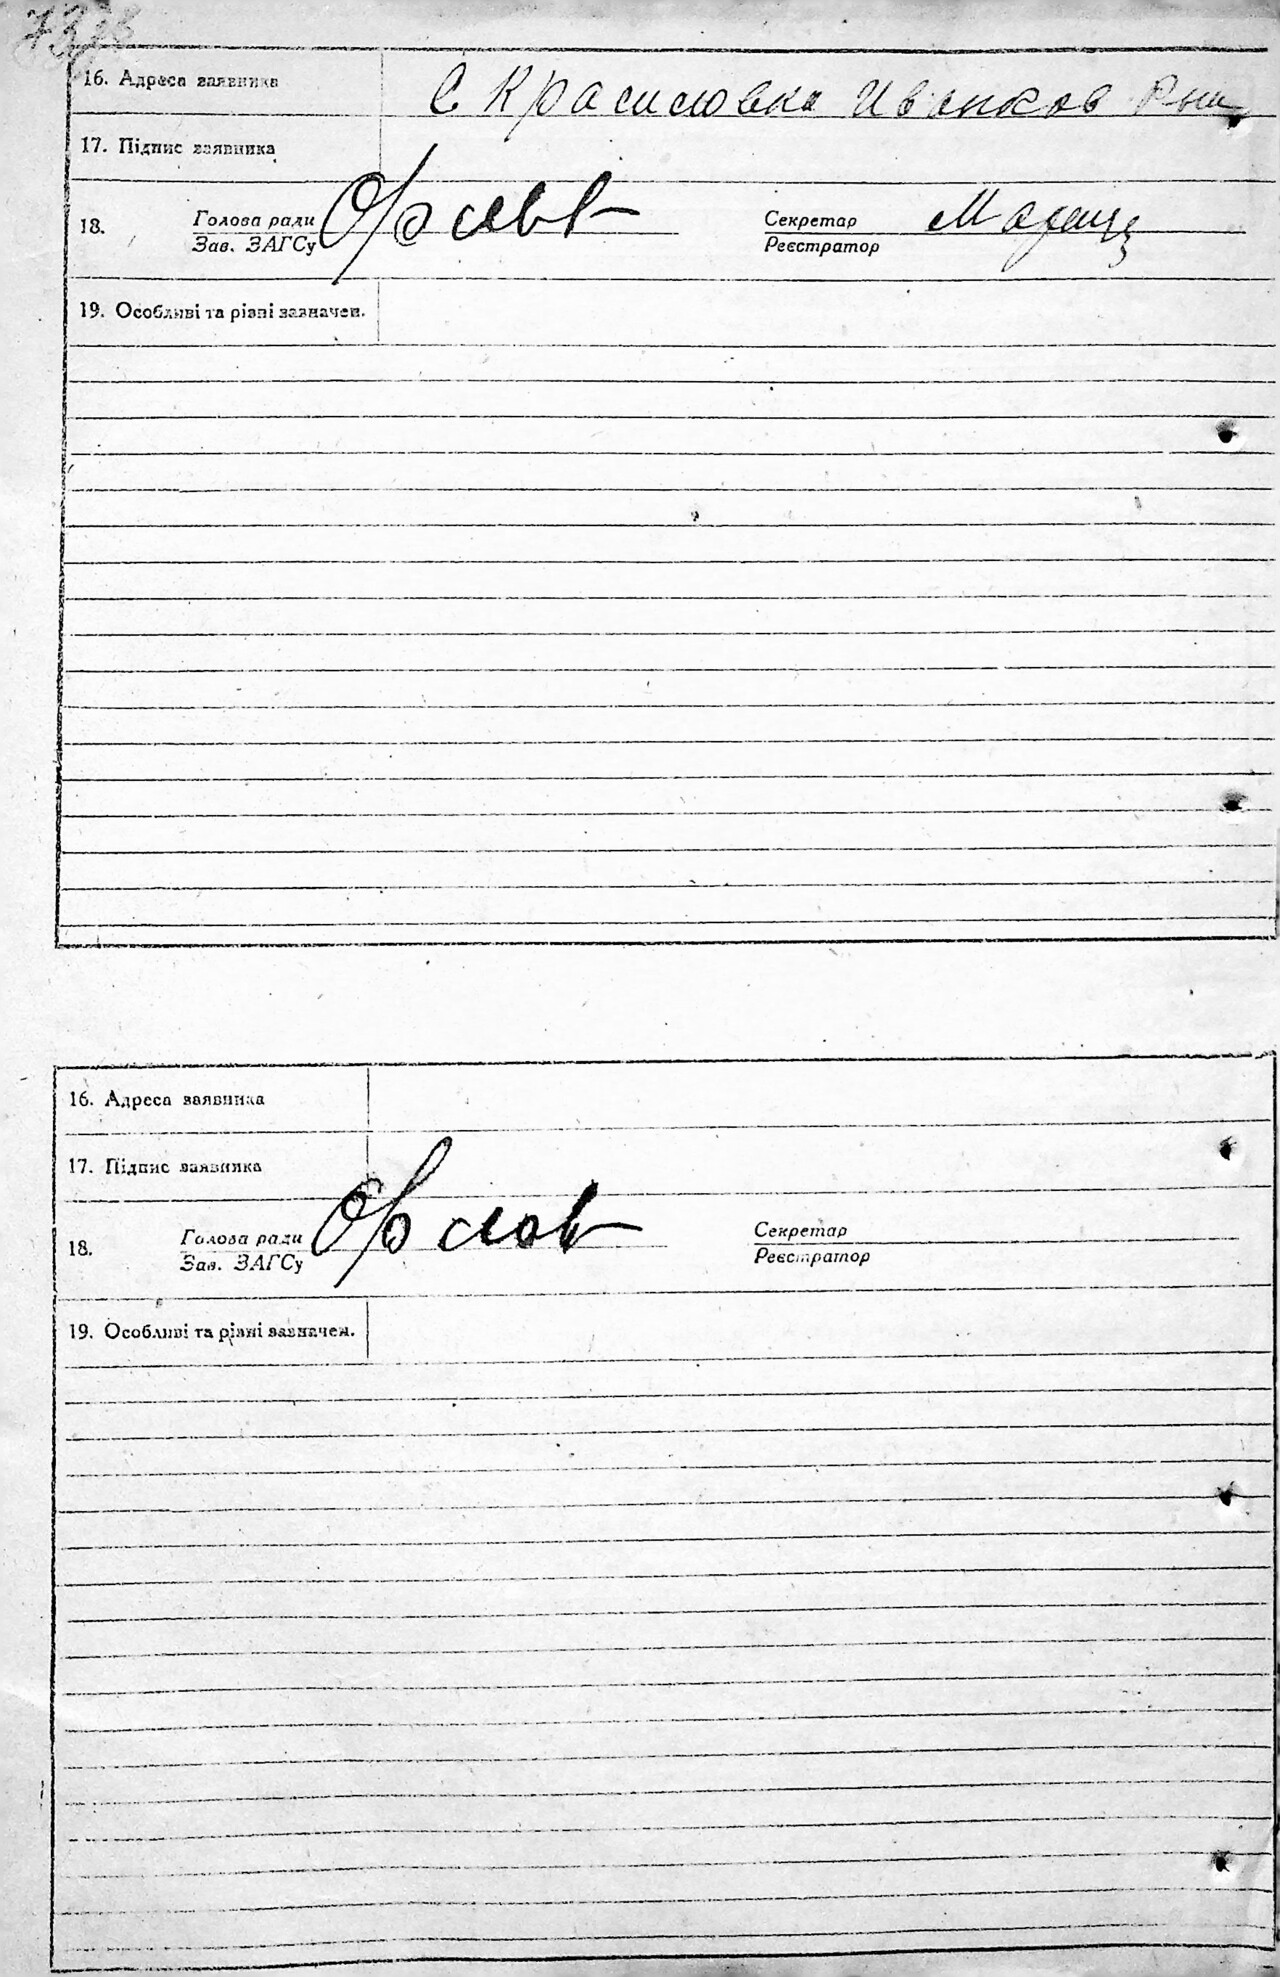 73
16. Адреса заявника С Красиловка Иванков Рна
17. Підпис заявника
18. Голова ради Орлов Секретар
Зав. ЗАГСу Реєстратор
19. Особливі та рівні зазначен.
16. Адреса заявника
17. Підпис заявника
18. Голова ради Орлов Секретар
Зав. ЗАГСу Реєстратор
19. Особливі та рівні зазначен.